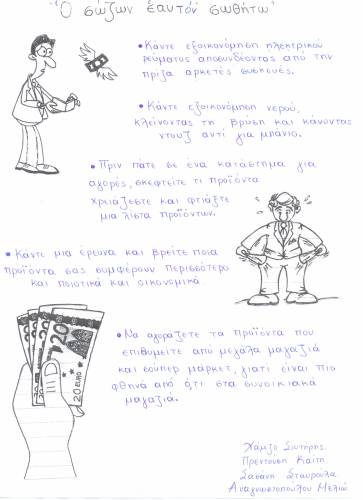 Ὁ σώζων ἑαυτόν σωθήτω
• Κάντε εξοικονόμηση ηλεκτρικού
ρεύματος αποσυνδέοντας από την
πρίζα αρκετές συσκευές.
• Κάντε εξοικονόμηση νερού,
κλείνοντας τη βρύση και κάνοντας
ντουζ αντί για μπάνιο.
• Πριν πάτε σε ένα κατάστημα για
αγορές, σκεφτείτε τι προϊόντα
χρειάζεστε και φτιάξτε
μια λίστα προϊόντων.
• Κάντε μια έρευνα και βρείτε ποια
προϊόντα σας συμφέρουν περισσότερο
και ποιοτικά και οικονομικά.
• Να αγοράζετε τα προϊόντα που
επιθυμείτε από μεγάλα μαγαζιά
και σούπερ μάρκετ, γιατί είναι πιο
φθηνά από ό,τι στα συνοικιακά
μαγαζιά.
20
20 EURO
Χάμζο Σωτήρης
Πρεντούση Καίτη
Σταυρούλα
Αναγνωστοπούλου Μελίνα